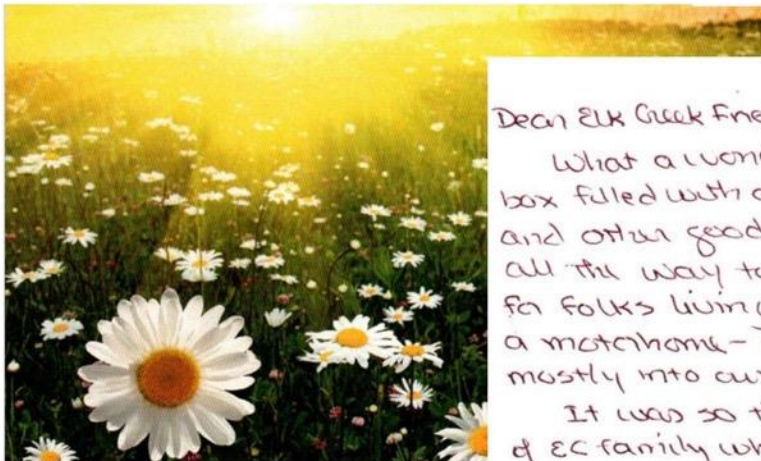 Dear Elk Creek Frie
What a won
box filled with c
and other good
all the way to
for folks living
a motorhome-
mostly into our
It was so t
of EC family wh